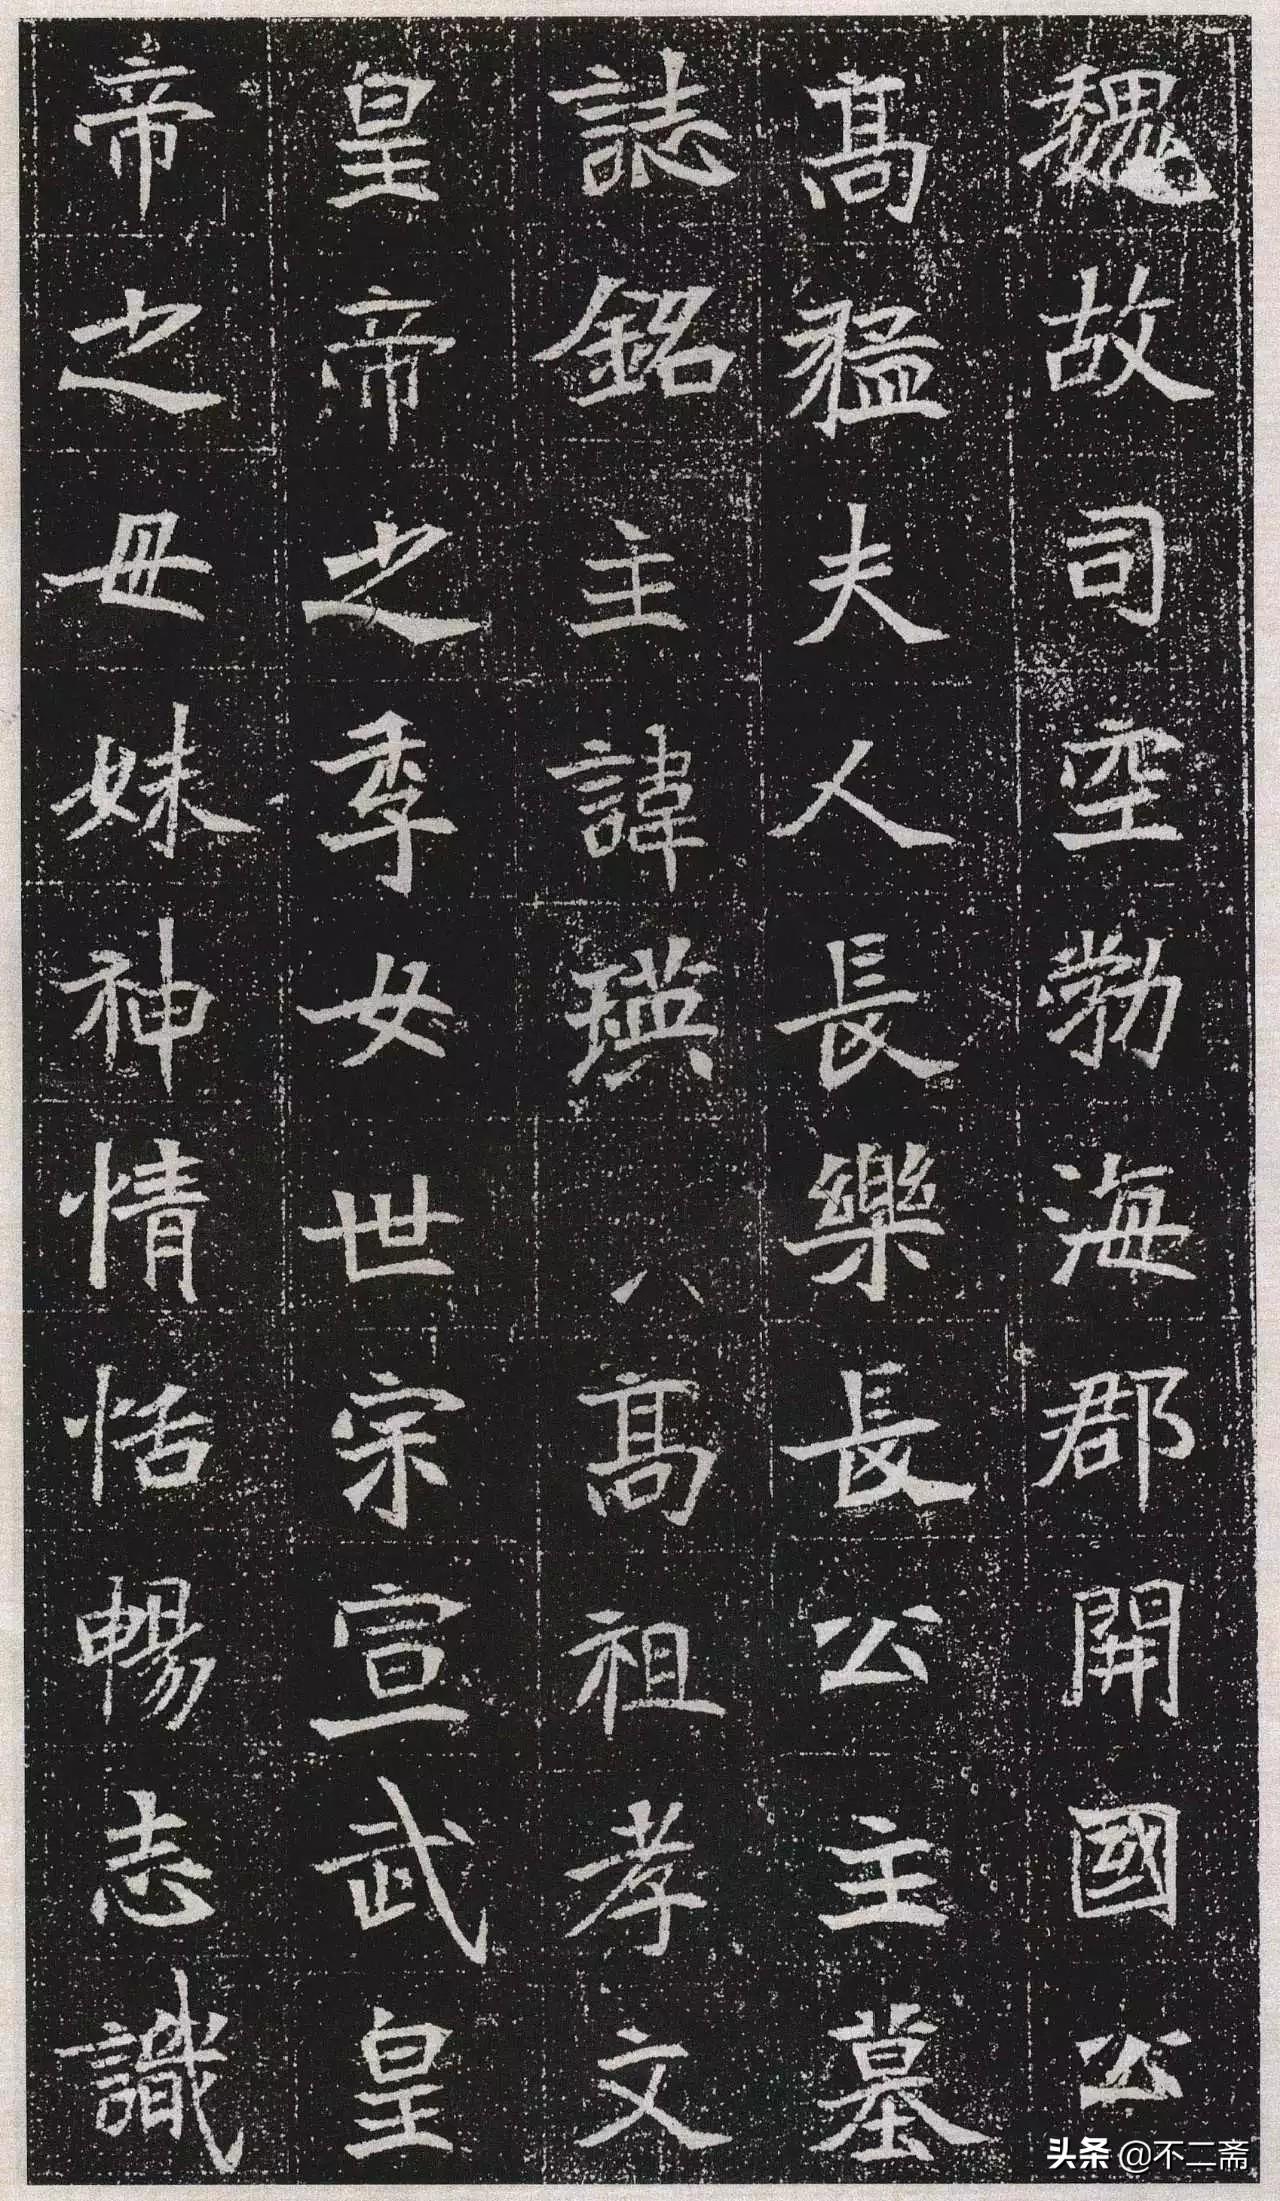 魏故司空勃海郡開國公
髙猛夫人長樂長公主墓
誌銘主諱瑛八髙祖孝文
皇帝之季女世宗宣武皇
帝之母妹神情恬暢志識
头条 @不二斋